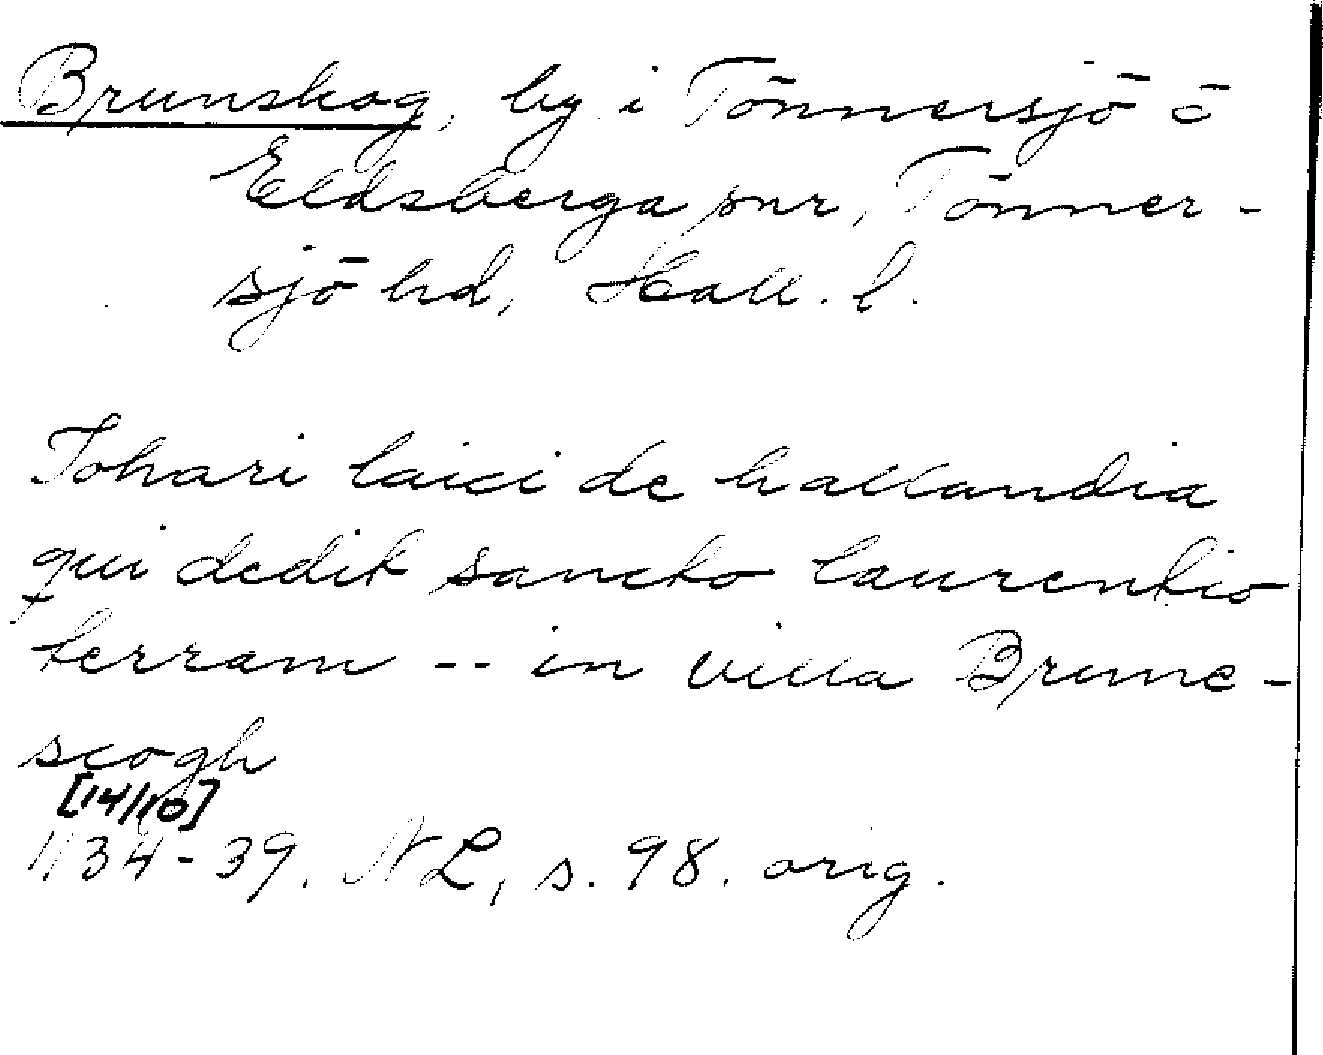 Brunskog, by i Tönnersjö o
Eldsberga snr, Tönner-
sjö hd, Hall. l.
Tohari laici de hallandia
qui dedit sancto laurentio
terram -- in villa Brune-
scogh
[14/10]
1134-39. NL, s. 98. orig.